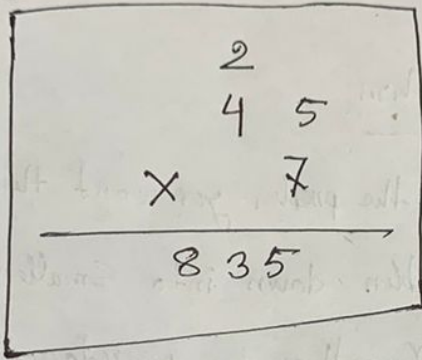 2
4 5
× 7
8 3 5